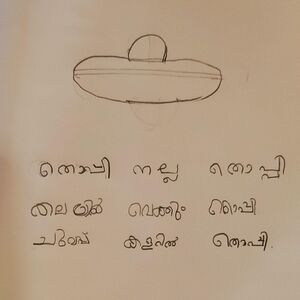 തൊപ്പി നല്ല തൊപ്പി
തലയിൽ വെക്കും തൊപ്പി
ചുവപ്പ് കളറിൽ തൊപ്പി.